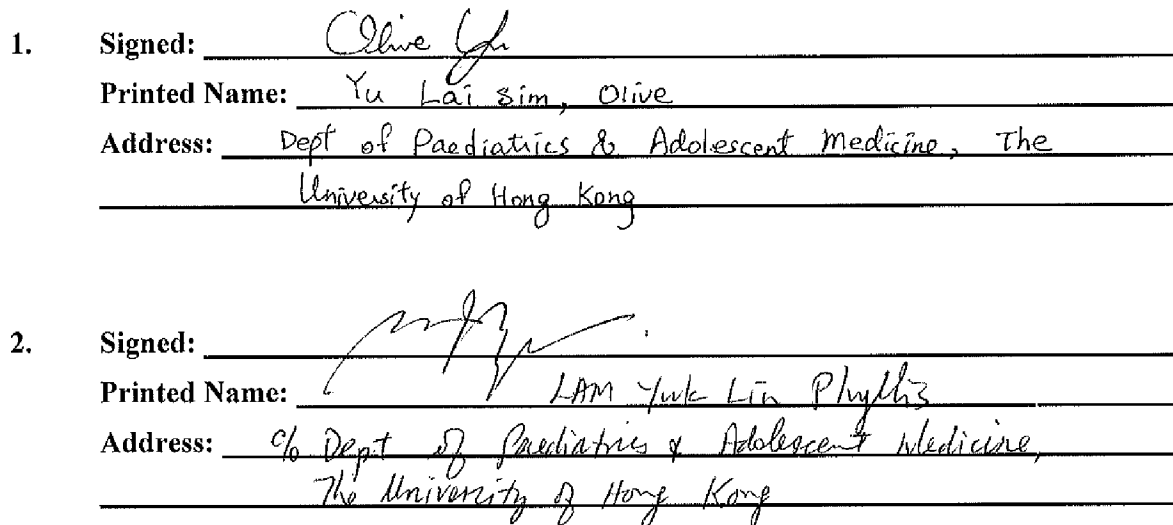 1. Signed: Olive Yu
Printed Name: Yu Lai Sim, Olive
Address: Dept of Paediatrics & Adolescent Medicine, The
University of Hong Kong
2. Signed:
Printed Name: LAM Yuk Lin Phyllis
Address: c/o Dept of Paediatrics & Adolescent Medicine,
The University of Hong Kong